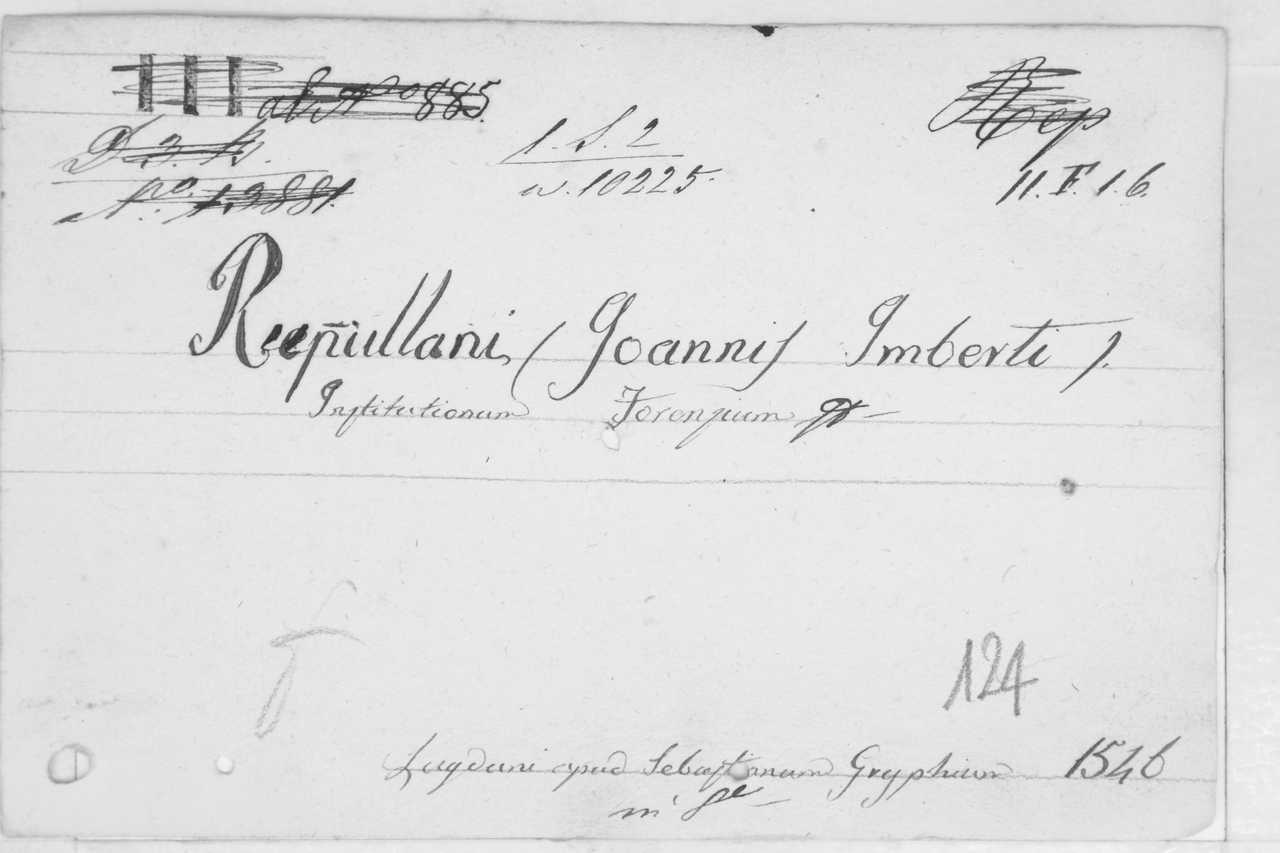 III ab Nº 885. Rep
D. 3. B. 1. S. 2
Nº. 13881. n. 10225. 11. F. 1. 6.
Reepiullani (Joannis Imberti).
Institutionum Forensium
124
Lugduni apud Sebastianum Gryphium 1546
in 8º